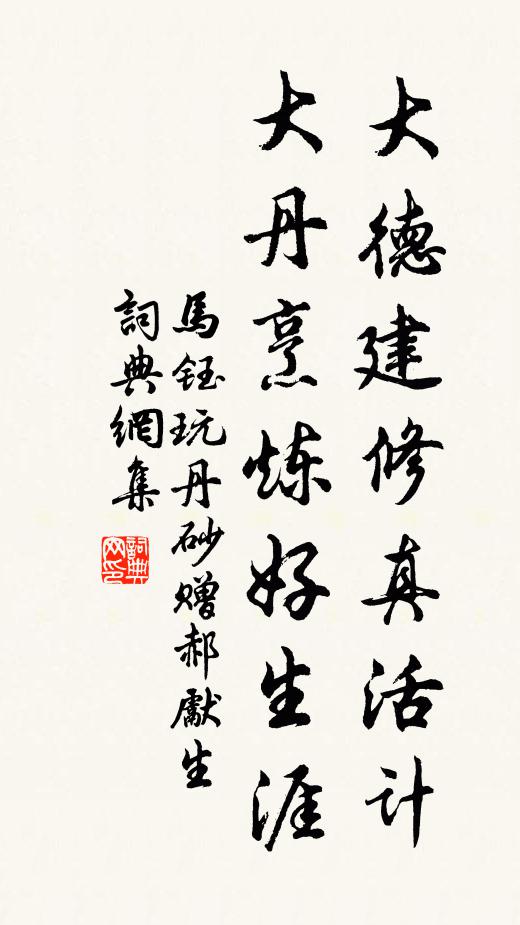 大德建修真活计
大丹烹炼好生涯
馬鈺玩丹砂赠郝獻生
詞典網集
詞典网印